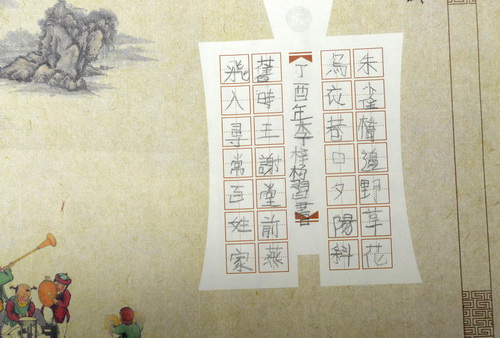 朱雀橋邊野草花
烏衣巷口夕陽斜
丁酉年李梓習書
舊時王謝堂前燕
飛入尋常百姓家